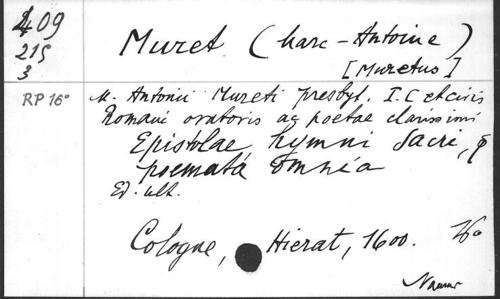 409
215
3
RP 16°
Muret (Marc-Antoine)
[Muretus]
M. Antonii Mureti presbyt. I.C et civis
Romani oratoris ac poetae clarissimi
Epistolae, hymni sacri, &
poemata omnia
Ed. ult.
Cologne, Hierat, 1600.
Namur